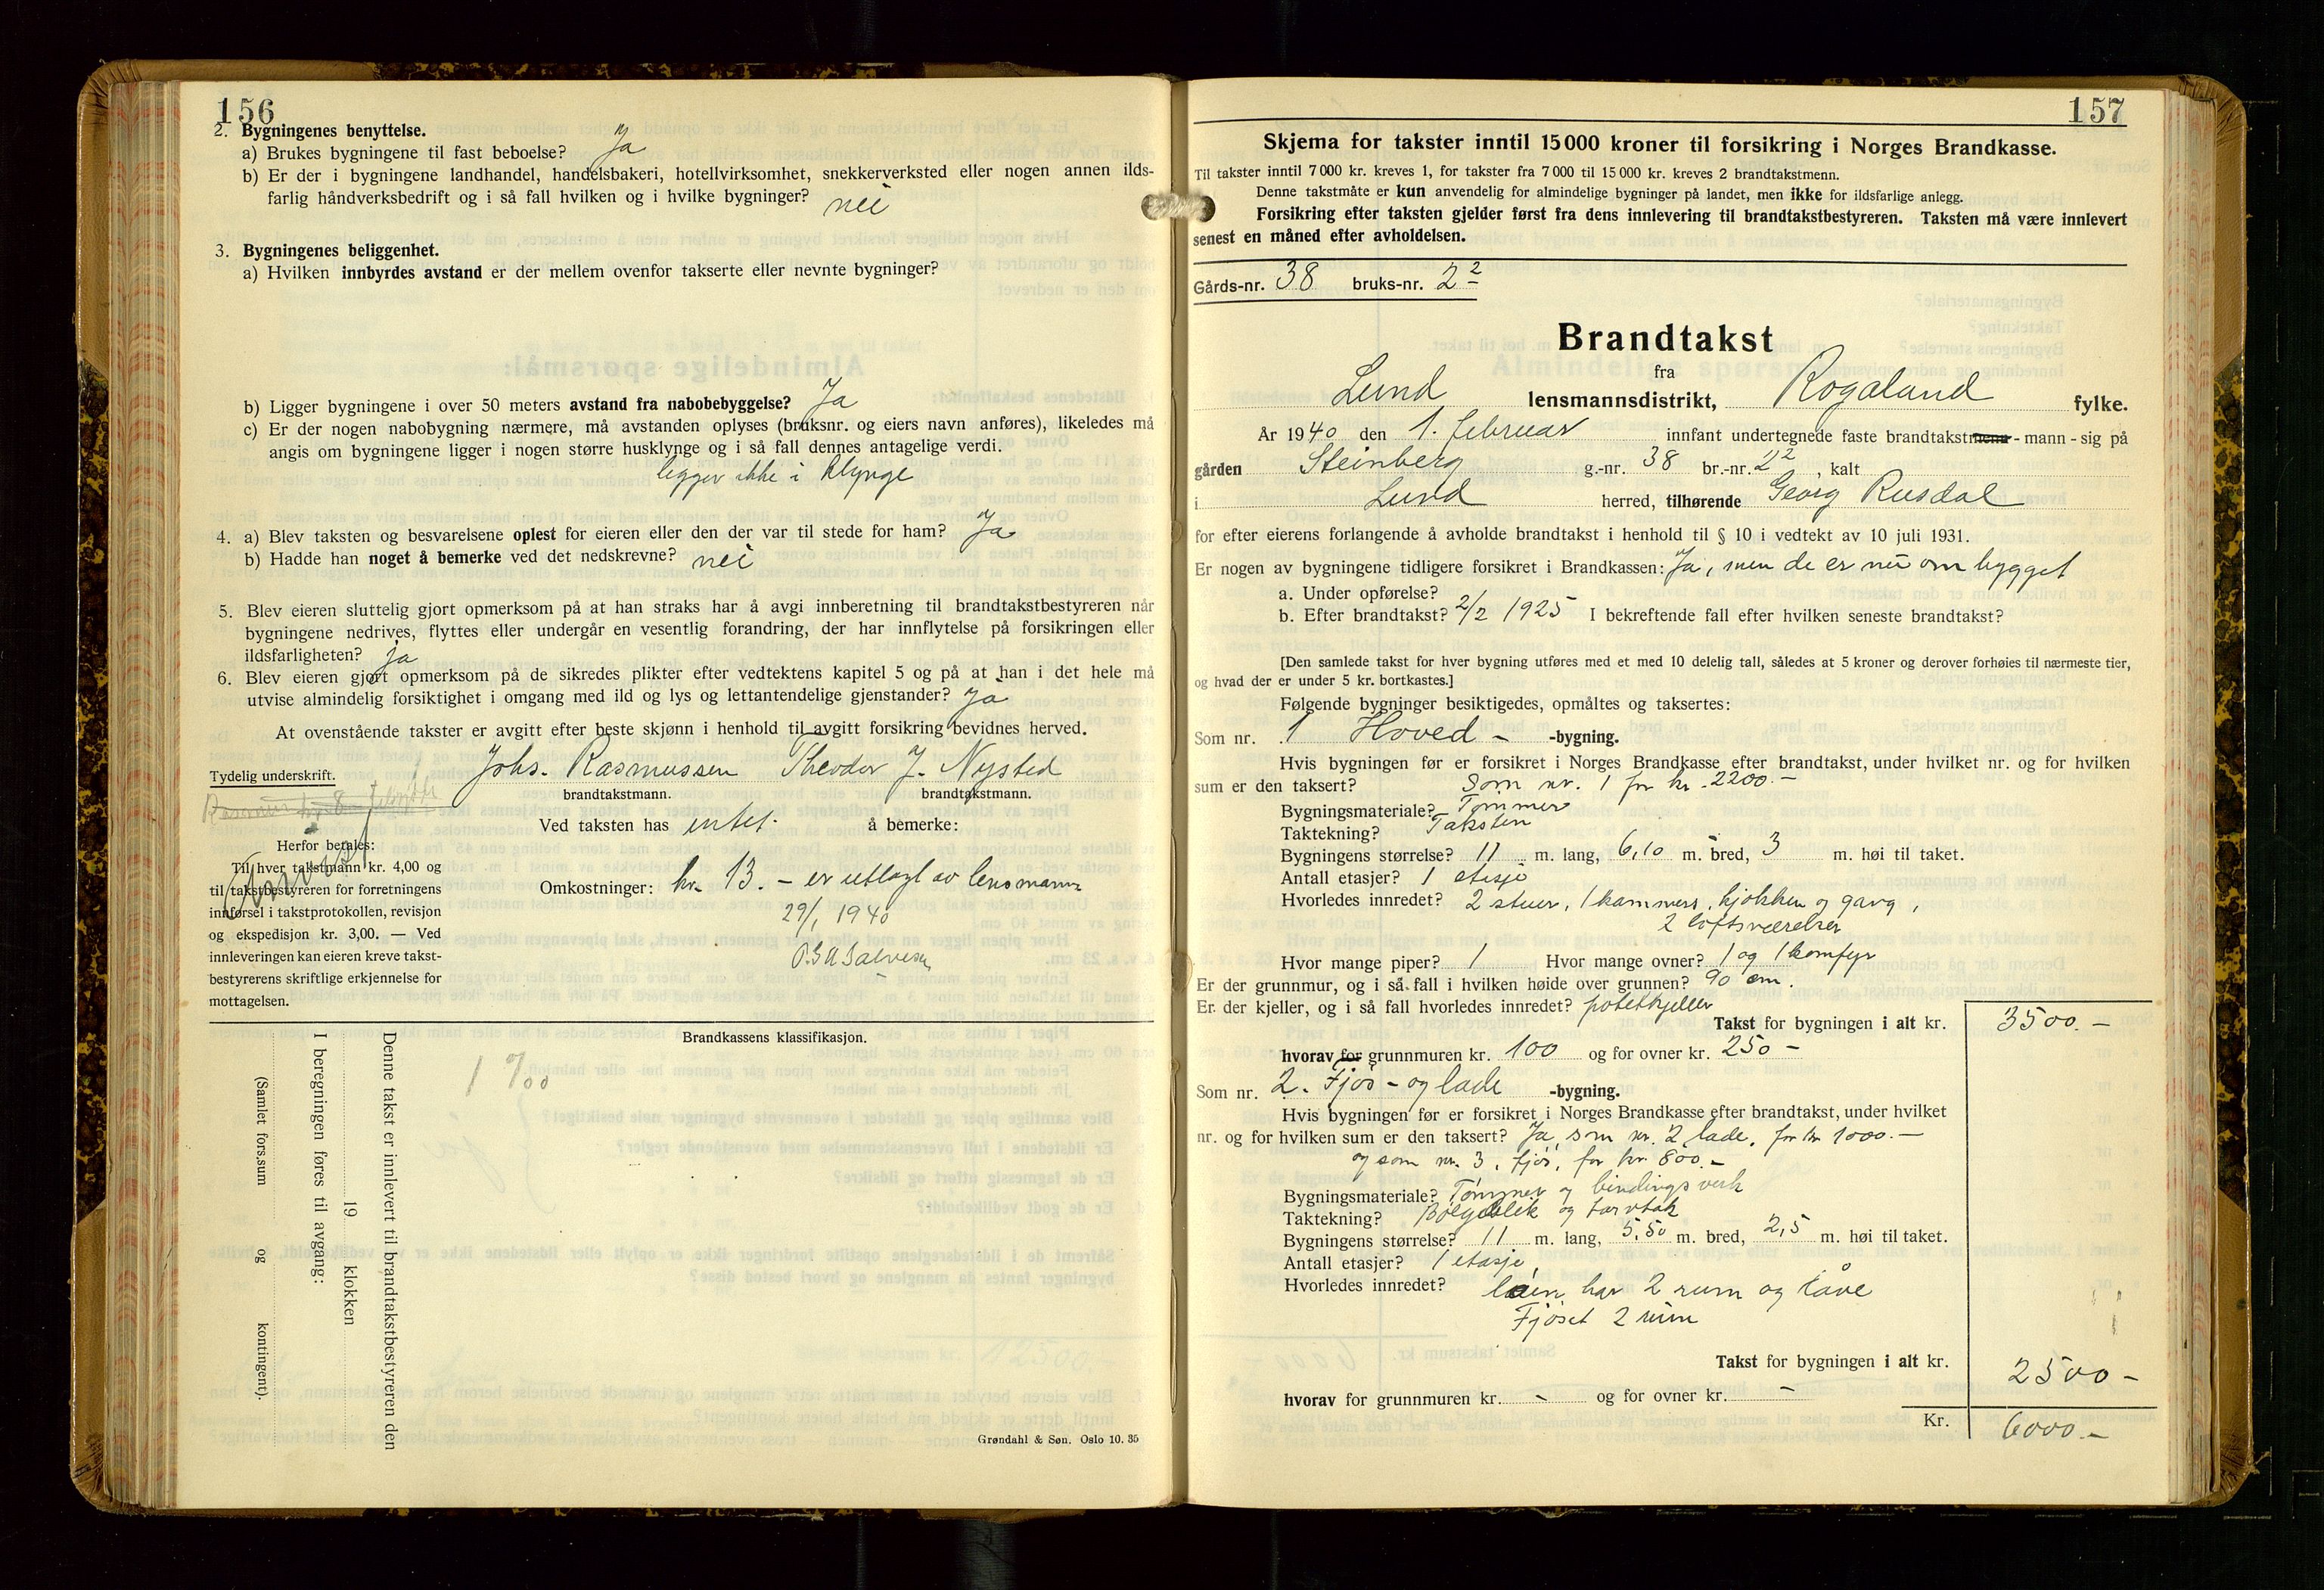 156
2. Bygningenes benyttelse.
a) Brukes bygningene til fast beboelse? Ja
b) Er der i bygningene landhandel, handelsbakeri, hotellvirksomhet, snekkerverksted eller nogen annen ilds-
farlig håndverksbedrift og i så fall hvilken og i hvilke bygninger? nei
3. Bygningenes beliggenhet.
a) Hvilken innbyrdes avstand er der mellem ovenfor takserte eller nevnte bygninger?
b) Ligger bygningene i over 50 meters avstand fra nabobebyggelse? Ja
c) Er der nogen nabobygning nærmere, må avstanden oplyses (bruksnr. og eiers navn anføres), likeledes må
angis om bygningene ligger i nogen større husklynge og i så fall dennes antagelige verdi.
ligger ikke i klynge
4. a) Blev taksten og besvarelsene oplest for eieren eller den der var til stede for ham? Ja
b) Hadde han noget å bemerke ved det nedskrevne? nei
5. Blev eieren sluttelig gjort opmerksom på at han straks har å avgi innberetning til brandtakstbestyreren når
bygningene nedrives, flyttes eller undergår en vesentlig forandring, der har innflytelse på forsikringen eller
ildsfarligheten? ja
6. Blev eieren gjort opmerksom på de sikredes plikter efter vedtektens kapitel 5 og på at han i det hele må
utvise almindelig forsiktighet i omgang med ild og lys og lettantendelige gjenstander? Ja
At ovenstående takster er avgitt efter beste skjønn i henhold til avgitt forsikring bevidnes herved.
Tydelig underskrift. Johs. Rasmussen Theodor J. Nysted
brandtakstmann. brandtakstmann.
Ved taksten has intet å bemerke:
Herfor betales:
Til hver takstmann kr. 4,00 og
til takstbestyreren for forretningens
innførsel i takstprotokollen, revisjon
og ekspedisjon kr. 3,00. — Ved
innleveringen kan eieren kreve takst-
bestyrerens skriftlige erkjennelse for
mottagelsen.
Omkostninger: kr. 13. – er utlagt av lensmann
29/1 1940
Brandkassens klassifikasjon.
1 ‰
Denne takst er innlevert til brandtakstbestyreren den
19 klokken
I beregningen føres til avgang:
(Samlet fors.sum og kontingent).
Grøndahl & Søn. Oslo 10. 35
157
Skjema for takster inntil 15000 kroner til forsikring i Norges Brandkasse.
Til takster inntil 7000 kr. kreves 1, for takster fra 7000 til 15000 kr. kreves 2 brandtakstmenn.
Denne takstmåte er kun anvendelig for almindelige bygninger på landet, men ikke for ildsfarlige anlegg.
Forsikring efter taksten gjelder først fra dens innlevering til brandtakstbestyreren. Taksten må være innlevert
senest en måned efter avholdelsen.
Gårds-nr. 38 bruks-nr. 2²
Brandtakst
fra
Lund lensmannsdistrikt, Rogaland fylke.
År 1940 den 1. februar innfant undertegnede faste brandtakstmenn - mann - sig på
gården Steinberg g.-nr. 38 br.-nr. 2² , kalt
i Lund herred, tilhørende Georg Rusdal
for efter eierens forlangende å avholde brandtakst i henhold til § 10 i vedtekt av 10 juli 1931.
Er nogen av bygningene tidligere forsikret i Brandkassen: Ja, men de er nu om bygget
a. Under opførelse?
b. Efter brandtakst? 2/2 1925 I bekreftende fall efter hvilken seneste brandtakst?
[Den samlede takst for hver bygning utføres med et med 10 delelig tall, således at 5 kroner og derover forhøies til nærmeste tier,
og hvad der er under 5 kr. bortkastes.]
Følgende bygninger besiktigedes, opmåltes og taksertes:
Som nr. 1 Hoved – -bygning.
Hvis bygningen før er forsikret i Norges Brandkasse efter brandtakst, under hvilket nr. og for hvilken
sum er den taksert? Som nr. 1 for kr. 2200.–
Bygningsmateriale? Tømmer
Taktekning? Taksten
Bygningens størrelse? 11 m. lang, 6,10 m. bred, 3 m. høi til taket.
Antall etasjer? 1 etasje
Hvorledes innredet? 2 stuer, 1 kammers, kjøkken og gang,
2 loftsværelser
Hvor mange piper? 1 Hvor mange ovner? 1 og 1 komfyr
Er der grunnmur, og i så fall i hvilken høide over grunnen? 90 cm.
Er der kjeller, og i så fall hvorledes innredet? potetkjeller
Takst for bygningen i alt kr. 3500.–
hvorav for grunnmuren kr. 100 og for ovner kr. 250 –
Som nr. 2. Fjøs – og lade -bygning.
Hvis bygningen før er forsikret i Norges Brandkasse efter brandtakst, under hvilket
nr. og for hvilken sum er den taksert? Ja, som nr. 2 lade, for kr 1000.–
og som nr. 3, fjøs, for kr. 800.–
Bygningsmateriale? Tømmer og bindingsverk
Taktekning? Bølgeblik og torvtak
Bygningens størrelse? 11 m. lang, 5,50 m. bred, 2,5 m. høi til taket.
Antall etasjer? 1 etasje,
Hvorledes innredet? løen har 2 rum og låve
Fjøset 2 rum
Takst for bygningen i alt kr. 2500 –
hvorav for grunnmuren kr. – og for ovner kr. –
Kr. 6000.–